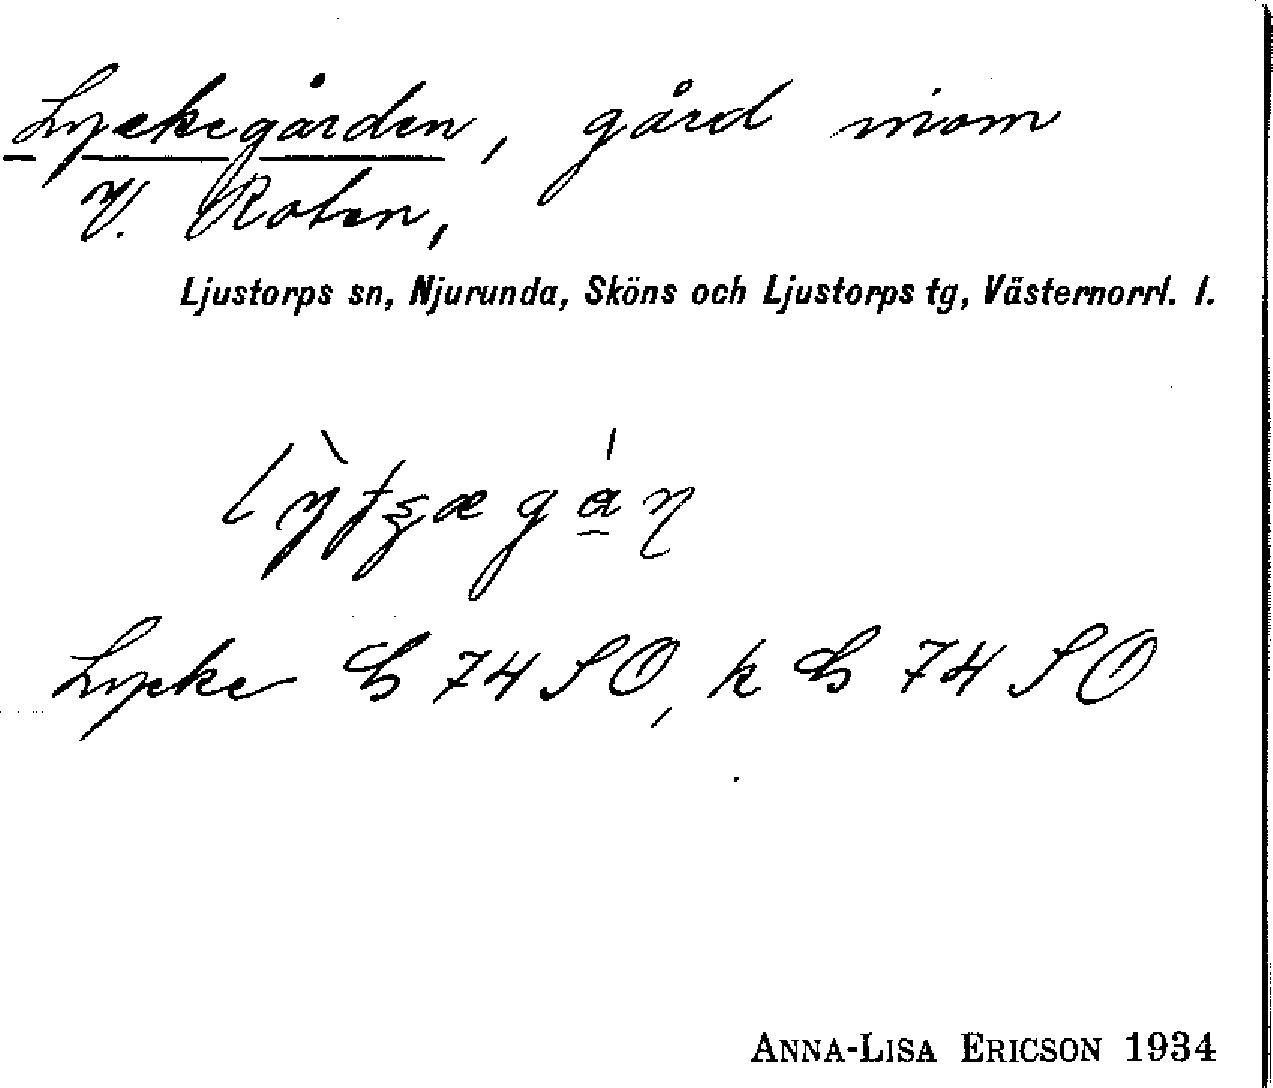 Lyckegården, gård inom
V. Roten,
Ljustorps sn, Njurunda, Sköns och Ljustorps tg, Västernorrl. l.
Lycke 74 SO, k 74 SO
ANNA-LISA ERICSON 1934